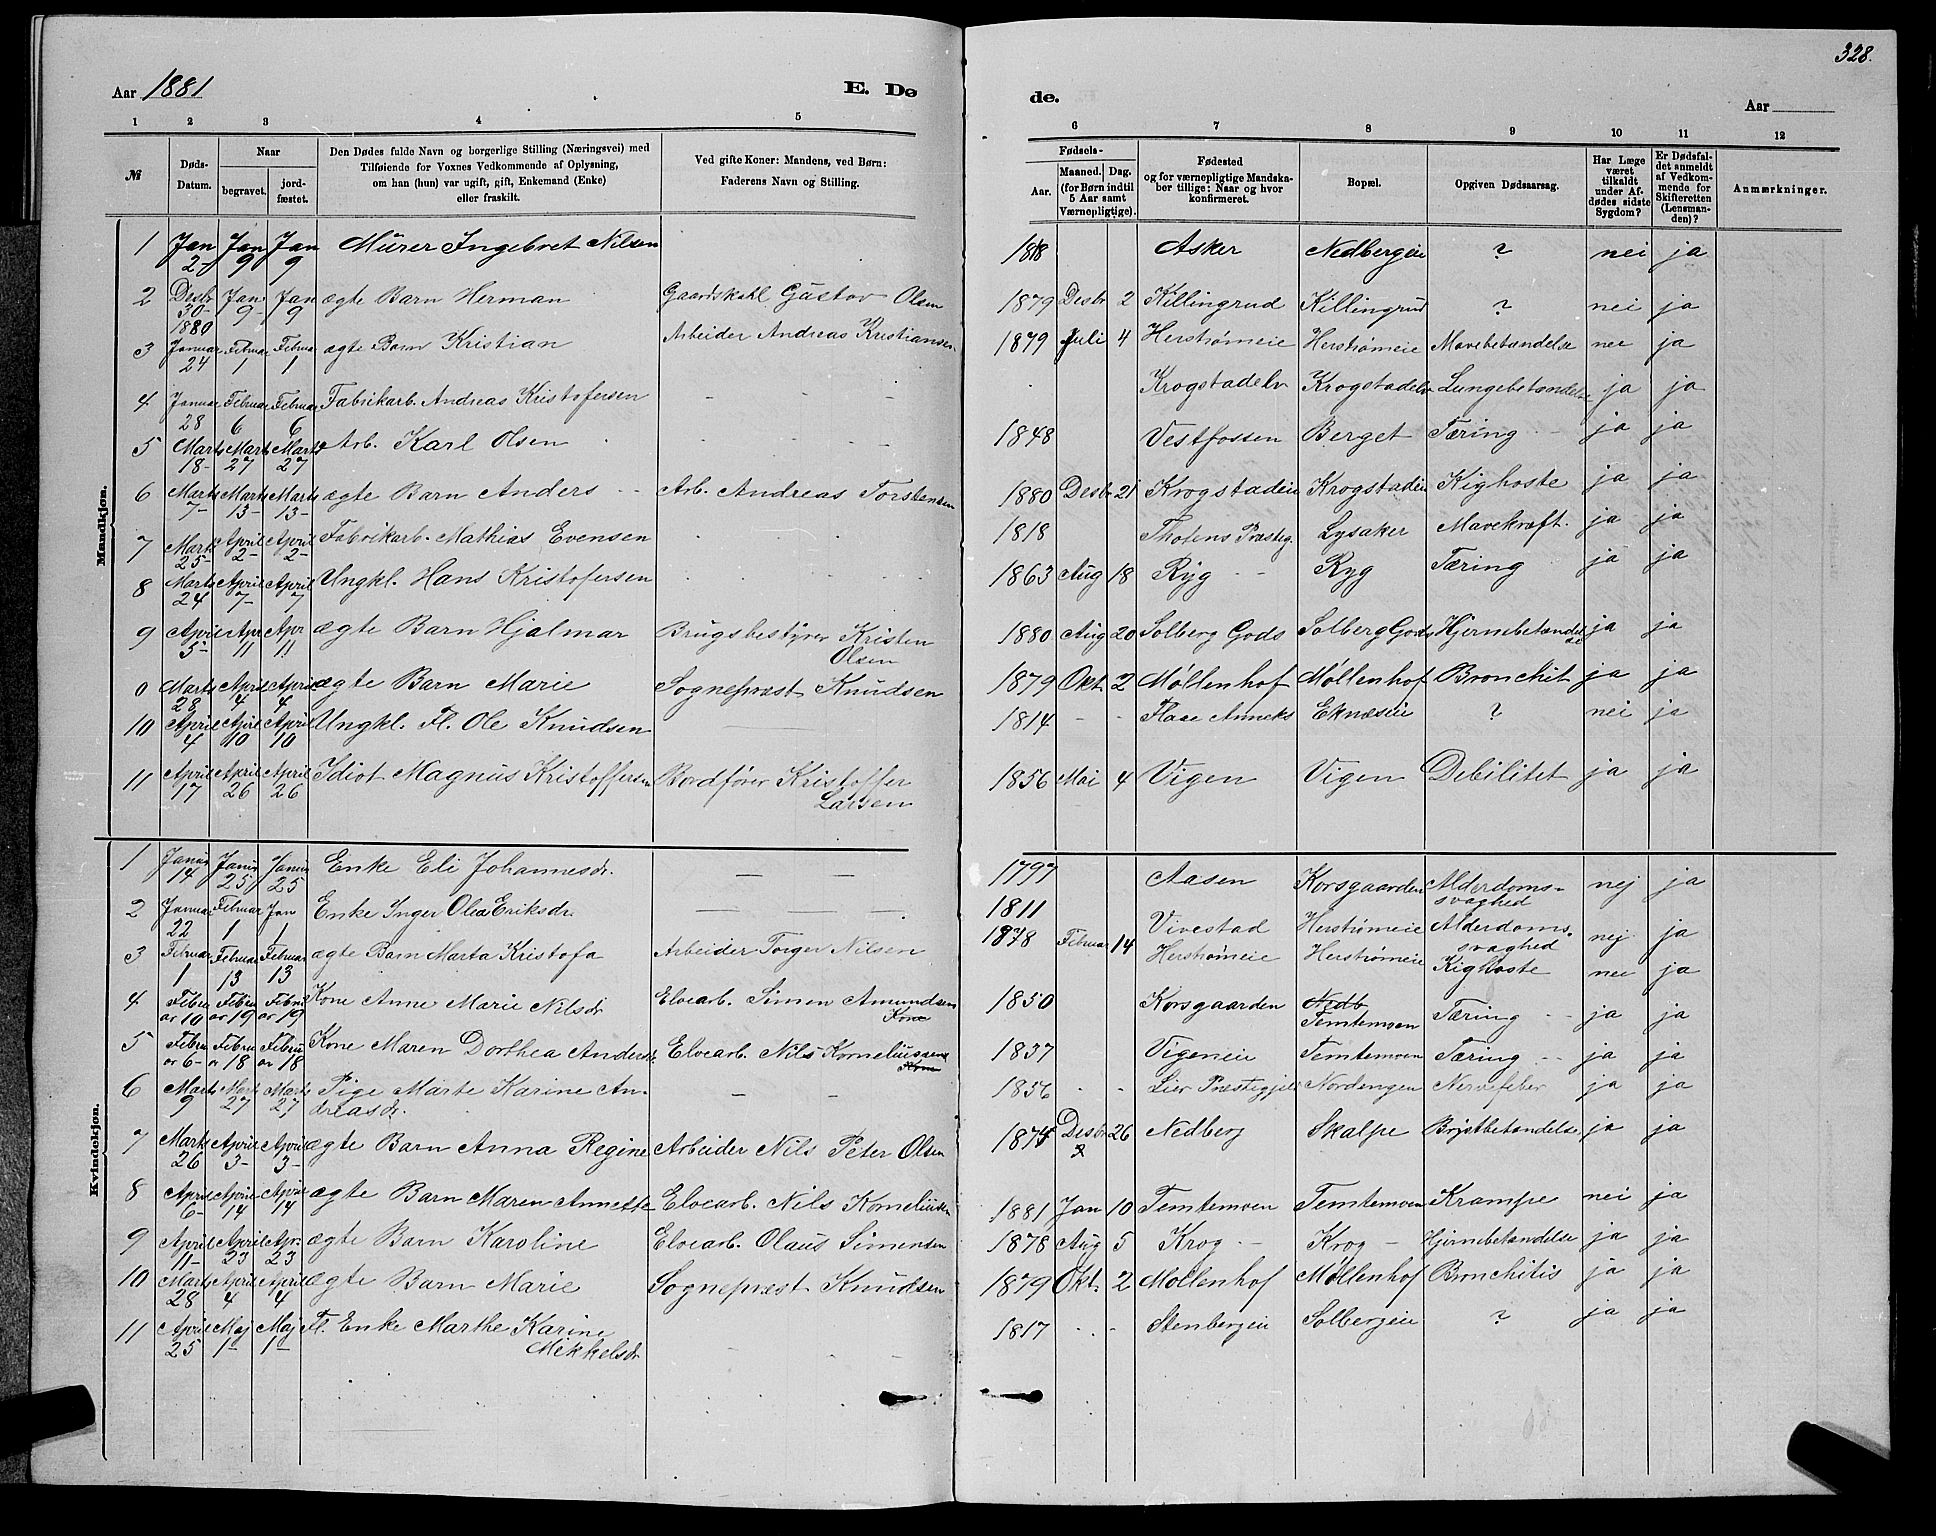 328.
Aar 1881
E. Dø
de.
Aar
1 2 3 4 5 6 7 8 9 10 11 12
№
Døds-Datum.
Naar
begravet.
jordfæstet.
Den Dødes fulde Navn og borgerlige Stilling (Næringsvei) med
Tilføiende for Voxnes Vedkommende af Oplysning,
om han (hun) var ugift, gift, Enkemand (Enke)
eller fraskilt.
Ved gifte Koner: Mandens, ved Børn:
Faderens Navn og Stilling.
Fødsels-
Aar.
Maaned. Dag.
(for Børn indtil
5 Aar samt
Værnepligtige).
Fødested
og for værnepligtige Mandska-
ber tillige: Naar og hvor
konfirmeret.
Bopæl.
Opgiven Dødsaarsag.
Har Læge
været
tilkaldt
under Af-
dødes sidste
Sygdom?
Er Dødsfal-
det anmeldt
af Vedkom-
mende for
Skifteretten
(Lensman-
den)?
Anmærkninger.
Mandkjøn.
1 Jan 2- Jan 9 Jan 9 Murer Ingebret Nilsen 1818 Asker Nedbergeie ? nei ja
2 Desbr 30- 1880 Jan 9- Jan 9 ægte Barn Herman Gaardskarl Gustov Olsen 1879 Desbr 2 Killingrud Killingrud ? nei ja
3 Januar 24 Februar 1 Februar 1 ægte Barn Kristian Arbeider Andreas Kristiansen 1879 Juli 4 Herstrømeie Herstrømeie Mavebetændelse nei ja
4 Januar 28 Februar 6 Februar 6 Fabrikarb. Andreas Kristofersen - - - Krogstadelv Krogstadelv Lungebetændelse ja ja
5 Marts 18- Marts 27 Marts 27 Arb. Karl Olsen - - - 1848 Vestfossen Berget Tæring - ja ja
6 Marts 7- Marts 13- Marts 13- ægte Barn Anders - - Arb. Andreas Torstensen 1880 Desbr 21 Krogstadeie Krogstadeie Kighoste ja ja
7 Marts 25- April 2- April 2- Fabrikarb. Mathias Evensen 1818 Thotens Præstig. Lysaker Mavekræft. ja ja
8 Marts 24 April 7- April 7 Ungkl. Hans Kristofersen 1863 Aug 18 Ryg - - Ryg Tæring ja ja
9 April 5- Apr 11 Apr 11 ægte Barn Hjalmar Brugsbestyrer Kristen Olsen 1880 Aug 20 Solberg Gods Solberg Gods Hjernebetændelse ja ja
0 Marts 28 April 4 April 4 ægte Barn Marie Sogneprest Knudsen 1879 Okt 2 Møllenhof Møllenhof Bronchit ja ja
10 April 4 April 10 April 10 Ungkl. Fl. Ole Knudsen 1814 - - Flaae Anneks Eknæseie ? nei ja
11 April 17 April 26 April 26 Idiot Magnus Kristoffersen Bordfører Kristoffer Larsen 1856 Mai 4 Vigen Vigen Debilitet ja ja
Kvindekjøn.
1 Januar 14 Januar 25 Januar 25 Enke Eli Johannesdr. — — 1797 Aasen Korsgaarden Alderdoms-svaghed nej ja
2 Januar 22 Februar 1 Jan 1 Enke Inger Olea Eriksdr. — — — 1811 Vivestad Herstrømeie Alderdoms-svaghed nej ja
3 Februar 1 Februar 13 Februar 13 ægte Barn Marta Kristofa Arbeider Torger Nilsen 1878 Februar 14 Herstrømeie Herstrømeie Kighoste nei ja
4 Februar 10 Februar 19 Februar 19 Kone Anne Marie Nilsdr Elvearb. Simen Amundsen Kone 1850 Korsgaarden Nedb Temtemoen Tæring - - ja ja
5 Februar 6- Februar 18 Februar 18 Kone Maren Dorthea Andersdr. Elvearb. Nils Korneliussen Kone 1837 Vigeneie Temtemoen Tæring - - ja ja
6 Marts 9 Marts 27 Marts 27 Pige Marte Karine An-
dreasdr. - - 1856 - - Lier Præstegjeld Nordengen Nervefeber ja ja
7 Marts 26 April 3- April 3- ægte Barn Anna Regine Arbeider Nils Peter Olsen 1874 Desbr 26 Nedberg Skalpe Brystbetændelse ja ja
8 April 6- April 14 April 14 ægte Barn Maren Annette Elvearb. Nils Korneliusen 1881 Jan 10 Temtemoen Temtemoen Krampe nei ja
9 April 11- April 23 Apr. 23 ægte Barn Karoline Elvearb. Olaus Simensen 1878 Aug 5 Krog - Krog - Hjernebetændelse ja ja
10 Marts 28 April 4 April 4 ægte Barn Marie Sogneprest Knudsen 1879 Okt. 2 Møllenhof Møllenhof Bronchitis ja ja
11 April 25 Maj 1 Maj 1 Fl. Enke Marthe Karine
Mikkelsdr - - 1817 - - Stenbergeie Solbergeie ? ja ja